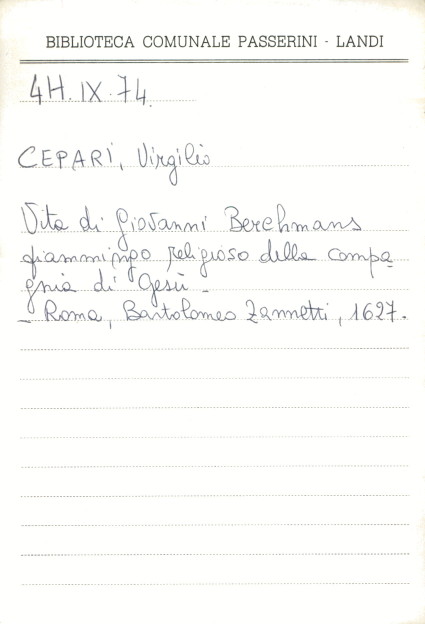 BIBLIOTECA COMUNALE PASSERINI - LANDI
4H.IX.74.
CEPARI, Virgilio
Vita di Giovanni Berchmans
fiammingo religioso della compa
gnia di Gesù -
- Roma, Bartolomeo Zannetti, 1627.